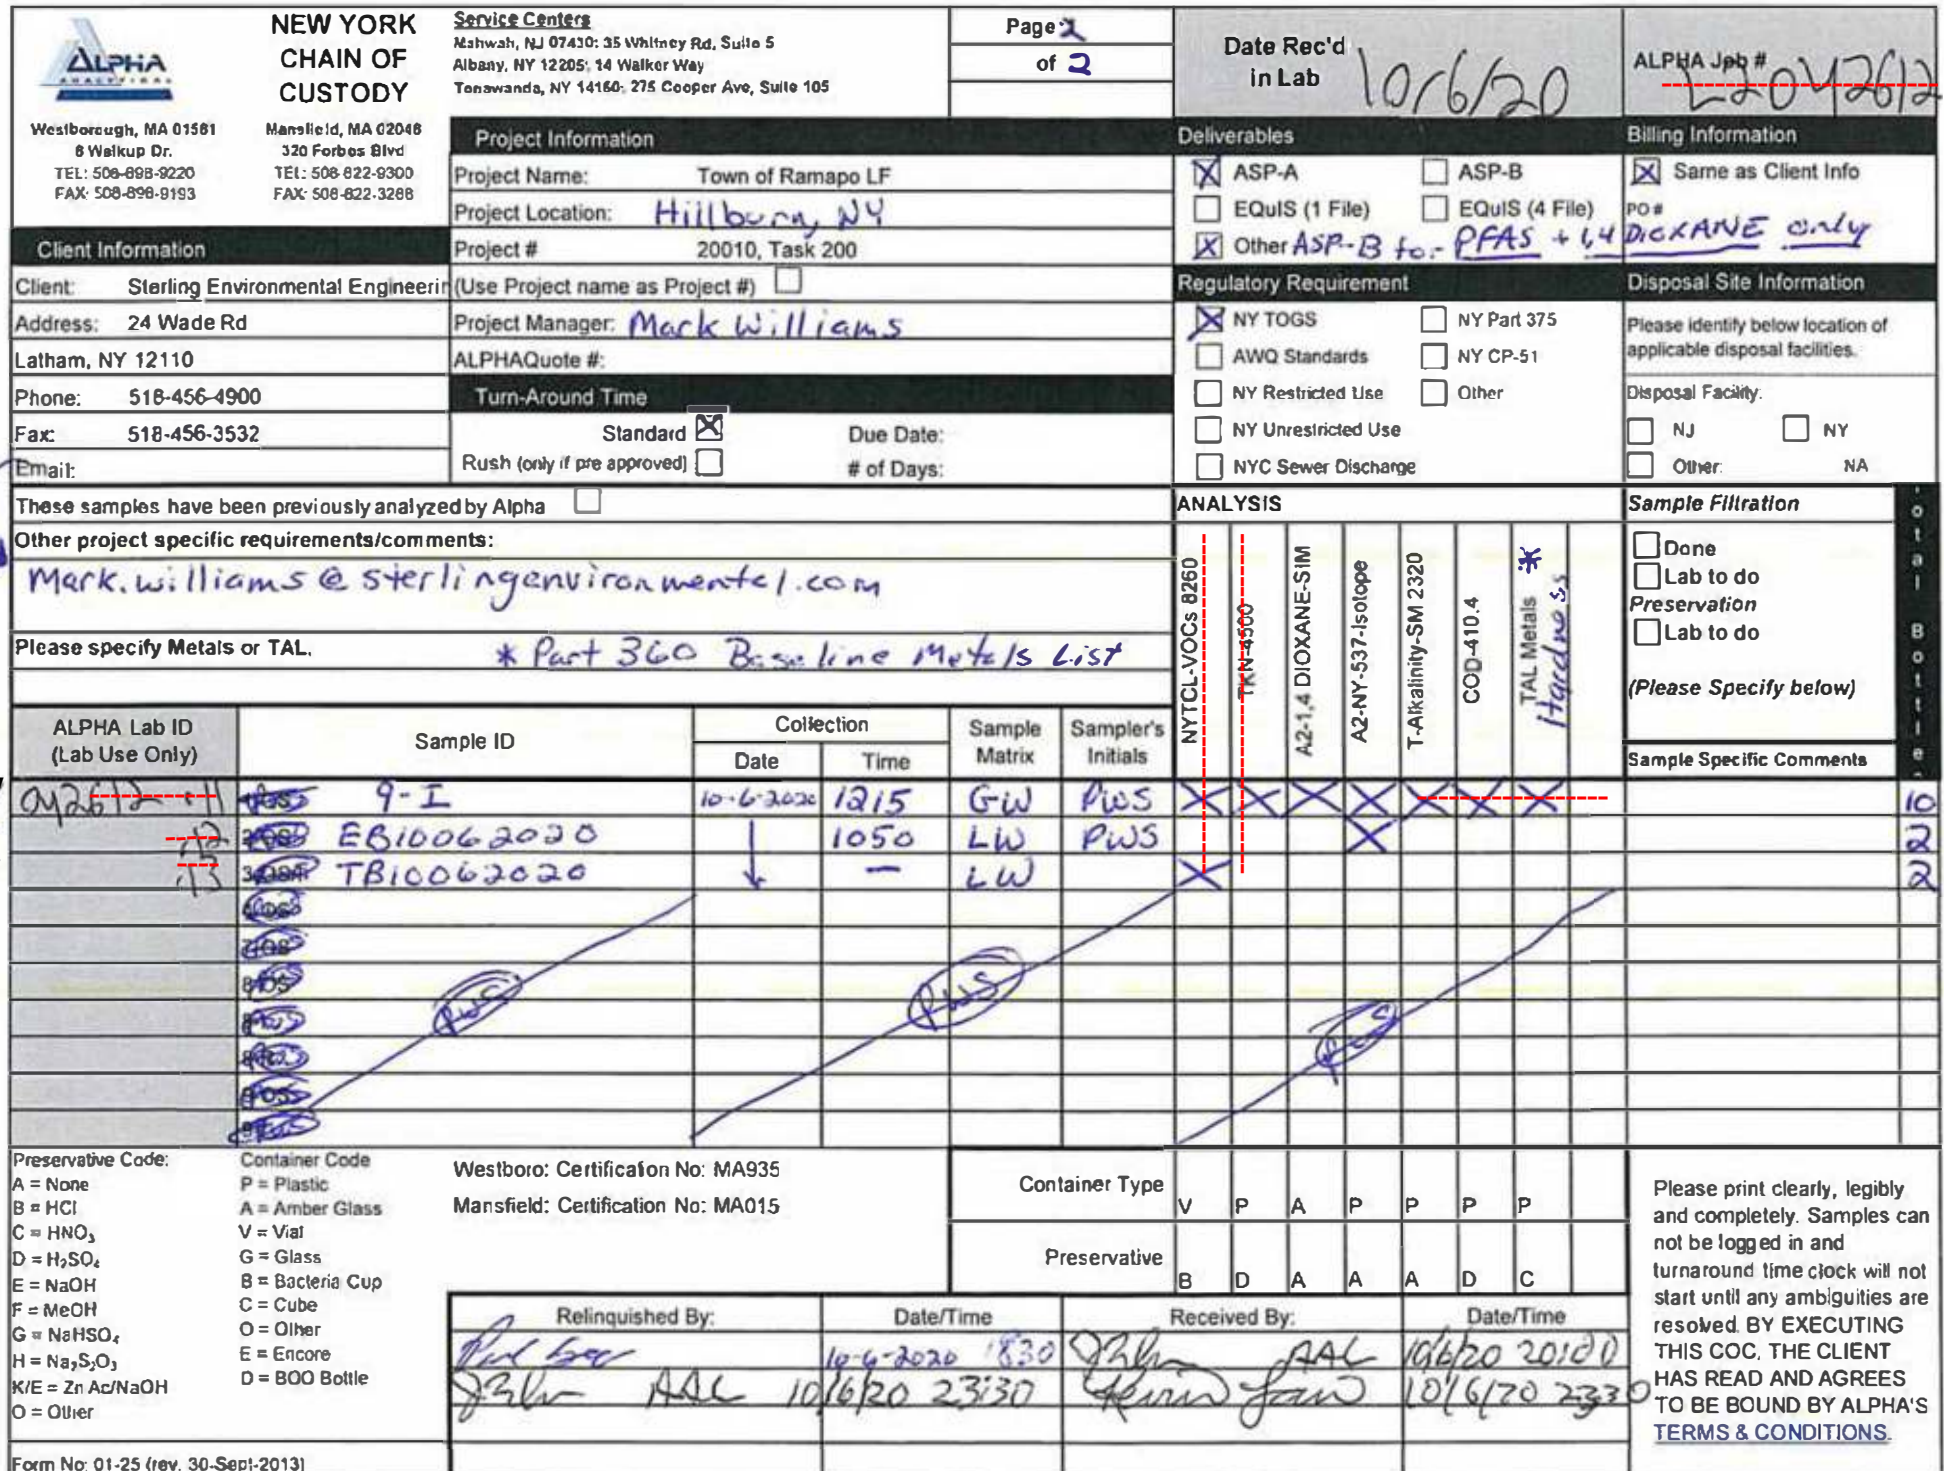 ALPHA
ANALYTICAL
Westborough, MA 01581
8 Walkup Dr.
TEL: 508-898-9220
FAX: 508-898-9193
NEW YORK
CHAIN OF
CUSTODY
Mansfield, MA 02048
320 Forbes Blvd
TEL: 508-822-9300
FAX: 508-822-3288
Service Centers
Mahwah, NJ 07430: 35 Whitney Rd, Suite 5
Albany, NY 12205: 14 Walker Way
Tonawanda, NY 14150: 275 Cooper Ave, Suite 105
Page 2
of 2
Date Rec'd
in Lab
10/6/20
ALPHA Job #
L2042612
Client Information
Client: Sterling Environmental Engineerin
Address: 24 Wade Rd
Latham, NY 12110
Phone: 518-456-4900
Fax: 518-456-3532
Email:
Project Information
Project Name: Town of Ramapo LF
Project Location: Hillburn, NY
Project # 20010, Task 200
(Use Project name as Project #)
Project Manager: Mark Williams
ALPHAQuote #:
Turn-Around Time
Standard X Due Date:
Rush (only if pre approved) # of Days:
Deliverables
X ASP-A ASP-B
EQuIS (1 File) EQuIS (4 File)
X Other ASP-B for PFAS + 1,4 DIOXANE only
Billing Information
X Same as Client Info
PO #
Regulatory Requirement
X NY TOGS NY Part 375
AWQ Standards NY CP-51
NY Restricted Use Other
NY Unrestricted Use
NYC Sewer Discharge
Disposal Site Information
Please identify below location of
applicable disposal facilities.
Disposal Facility:
NJ NY
Other: NA
These samples have been previously analyzed by Alpha
Other project specific requirements/comments:
Mark.williams@sterlingenvironmental.com
Please specify Metals or TAL.
* Part 360 Baseline Metals List
ANALYSIS
NYTCL-VOCs 8260
TKN-4500
A2-1,4 DIOXANE-SIM
A2-NY-537-Isotope
T-Alkalinity-SM 2320
COD-410.4
TAL Metals *
Hardness
Sample Filtration
Done
Lab to do
Preservation
Lab to do
(Please Specify below)
otal Bottle
ALPHA Lab ID
(Lab Use Only)
Sample ID
Collection
Date Time
Sample
Matrix
Sampler's
Initials
Sample Specific Comments
042612-11 9-I 10-6-2020 1215 GW PWS X X X X X X X 10
-12 EB10062020 1050 LW PWS X 2
-13 TB10062020 — LW X 2
PWS PWS PWS
Preservative Code:
A = None
B = HCl
C = HNO₃
D = H₂SO₄
E = NaOH
F = MeOH
G = NaHSO₄
H = Na₂S₂O₃
K/E = Zn Ac/NaOH
O = Other
Container Code
P = Plastic
A = Amber Glass
V = Vial
G = Glass
B = Bacteria Cup
C = Cube
O = Other
E = Encore
D = BOD Bottle
Westboro: Certification No: MA935
Mansfield: Certification No: MA015
Container Type V P A P P P P
Preservative B D A A A D C
Relinquished By: Date/Time Received By: Date/Time
10-6-2020 1830 AAL 10/6/20 20:00
AAL 10/6/20 23:30 10/6/20 2330
Please print clearly, legibly
and completely. Samples can
not be logged in and
turnaround time clock will not
start until any ambiguities are
resolved. BY EXECUTING
THIS COC, THE CLIENT
HAS READ AND AGREES
TO BE BOUND BY ALPHA'S
TERMS & CONDITIONS.
Form No: 01-25 (rev. 30-Sept-2013)